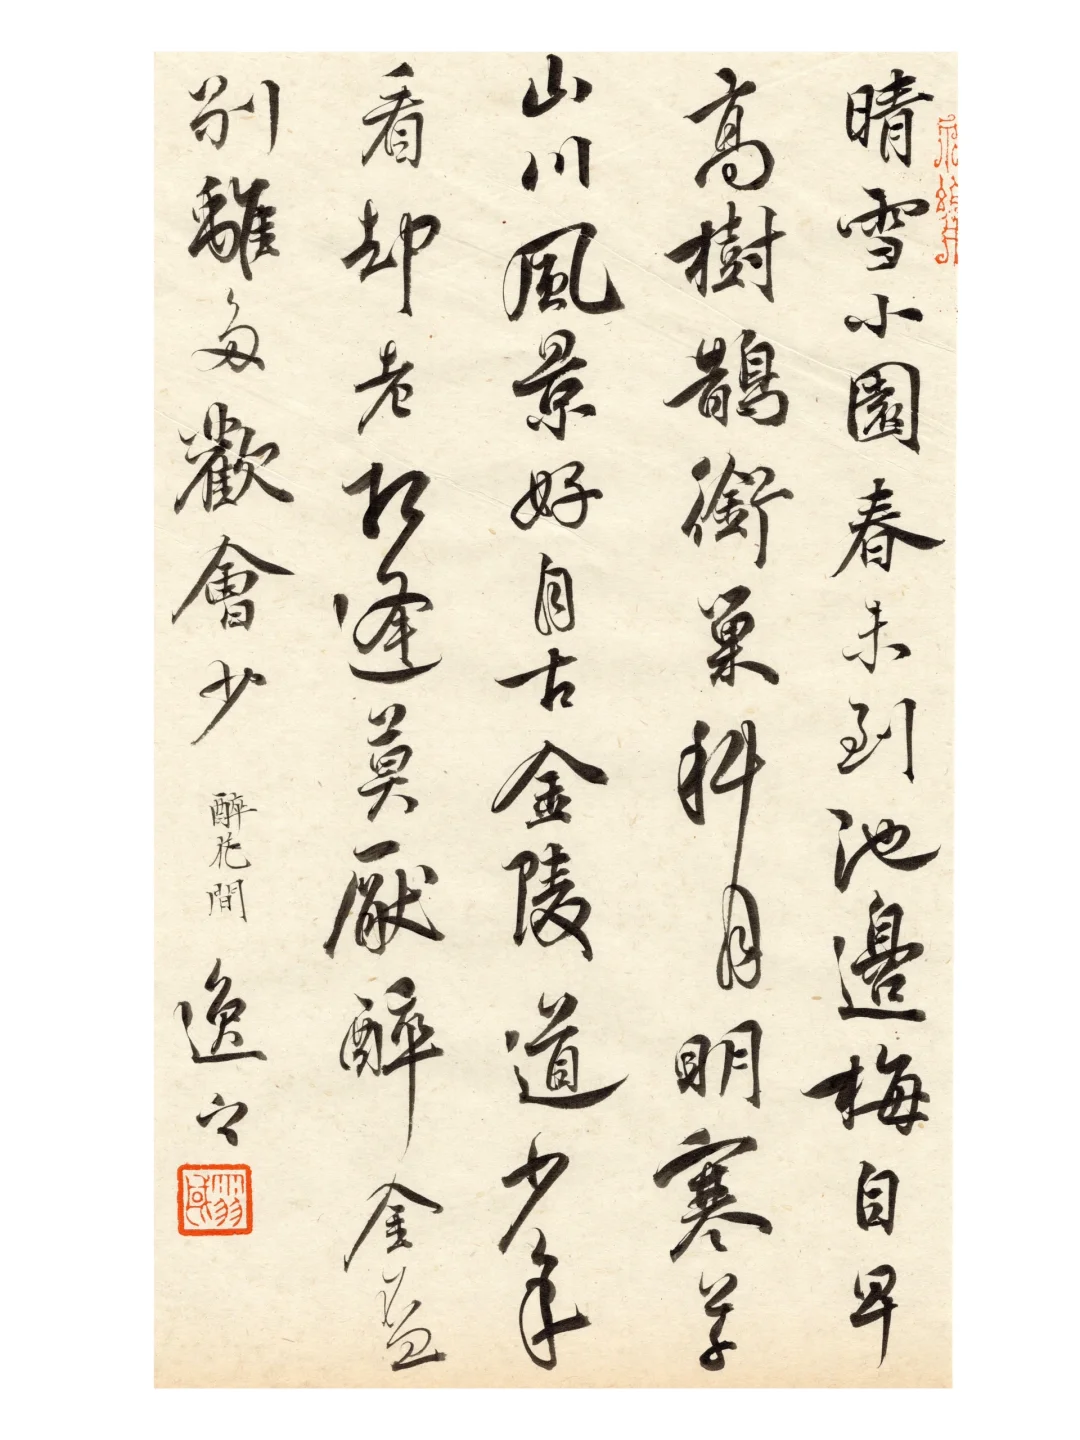 晴雪小園春未到池邊梅自早
高樹鵲銜巢斜月明寒草
山川風景好自古金陵道少年
看却老相逢莫厭醉金盃
別離多歡會少
醉花間
逸